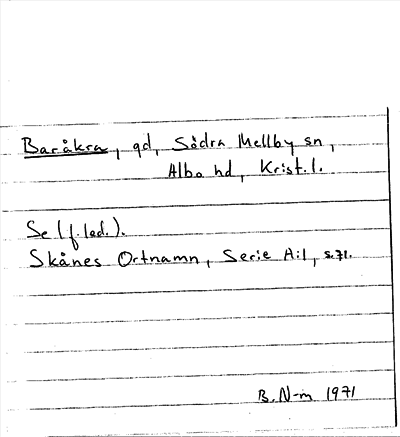 Baråkra, gd, Södra Mellby sn,
Albo hd, Krist.l.
Se (f.led.).
Skånes Ortnamn, Serie A:1, s.71.
B. N-m 1971